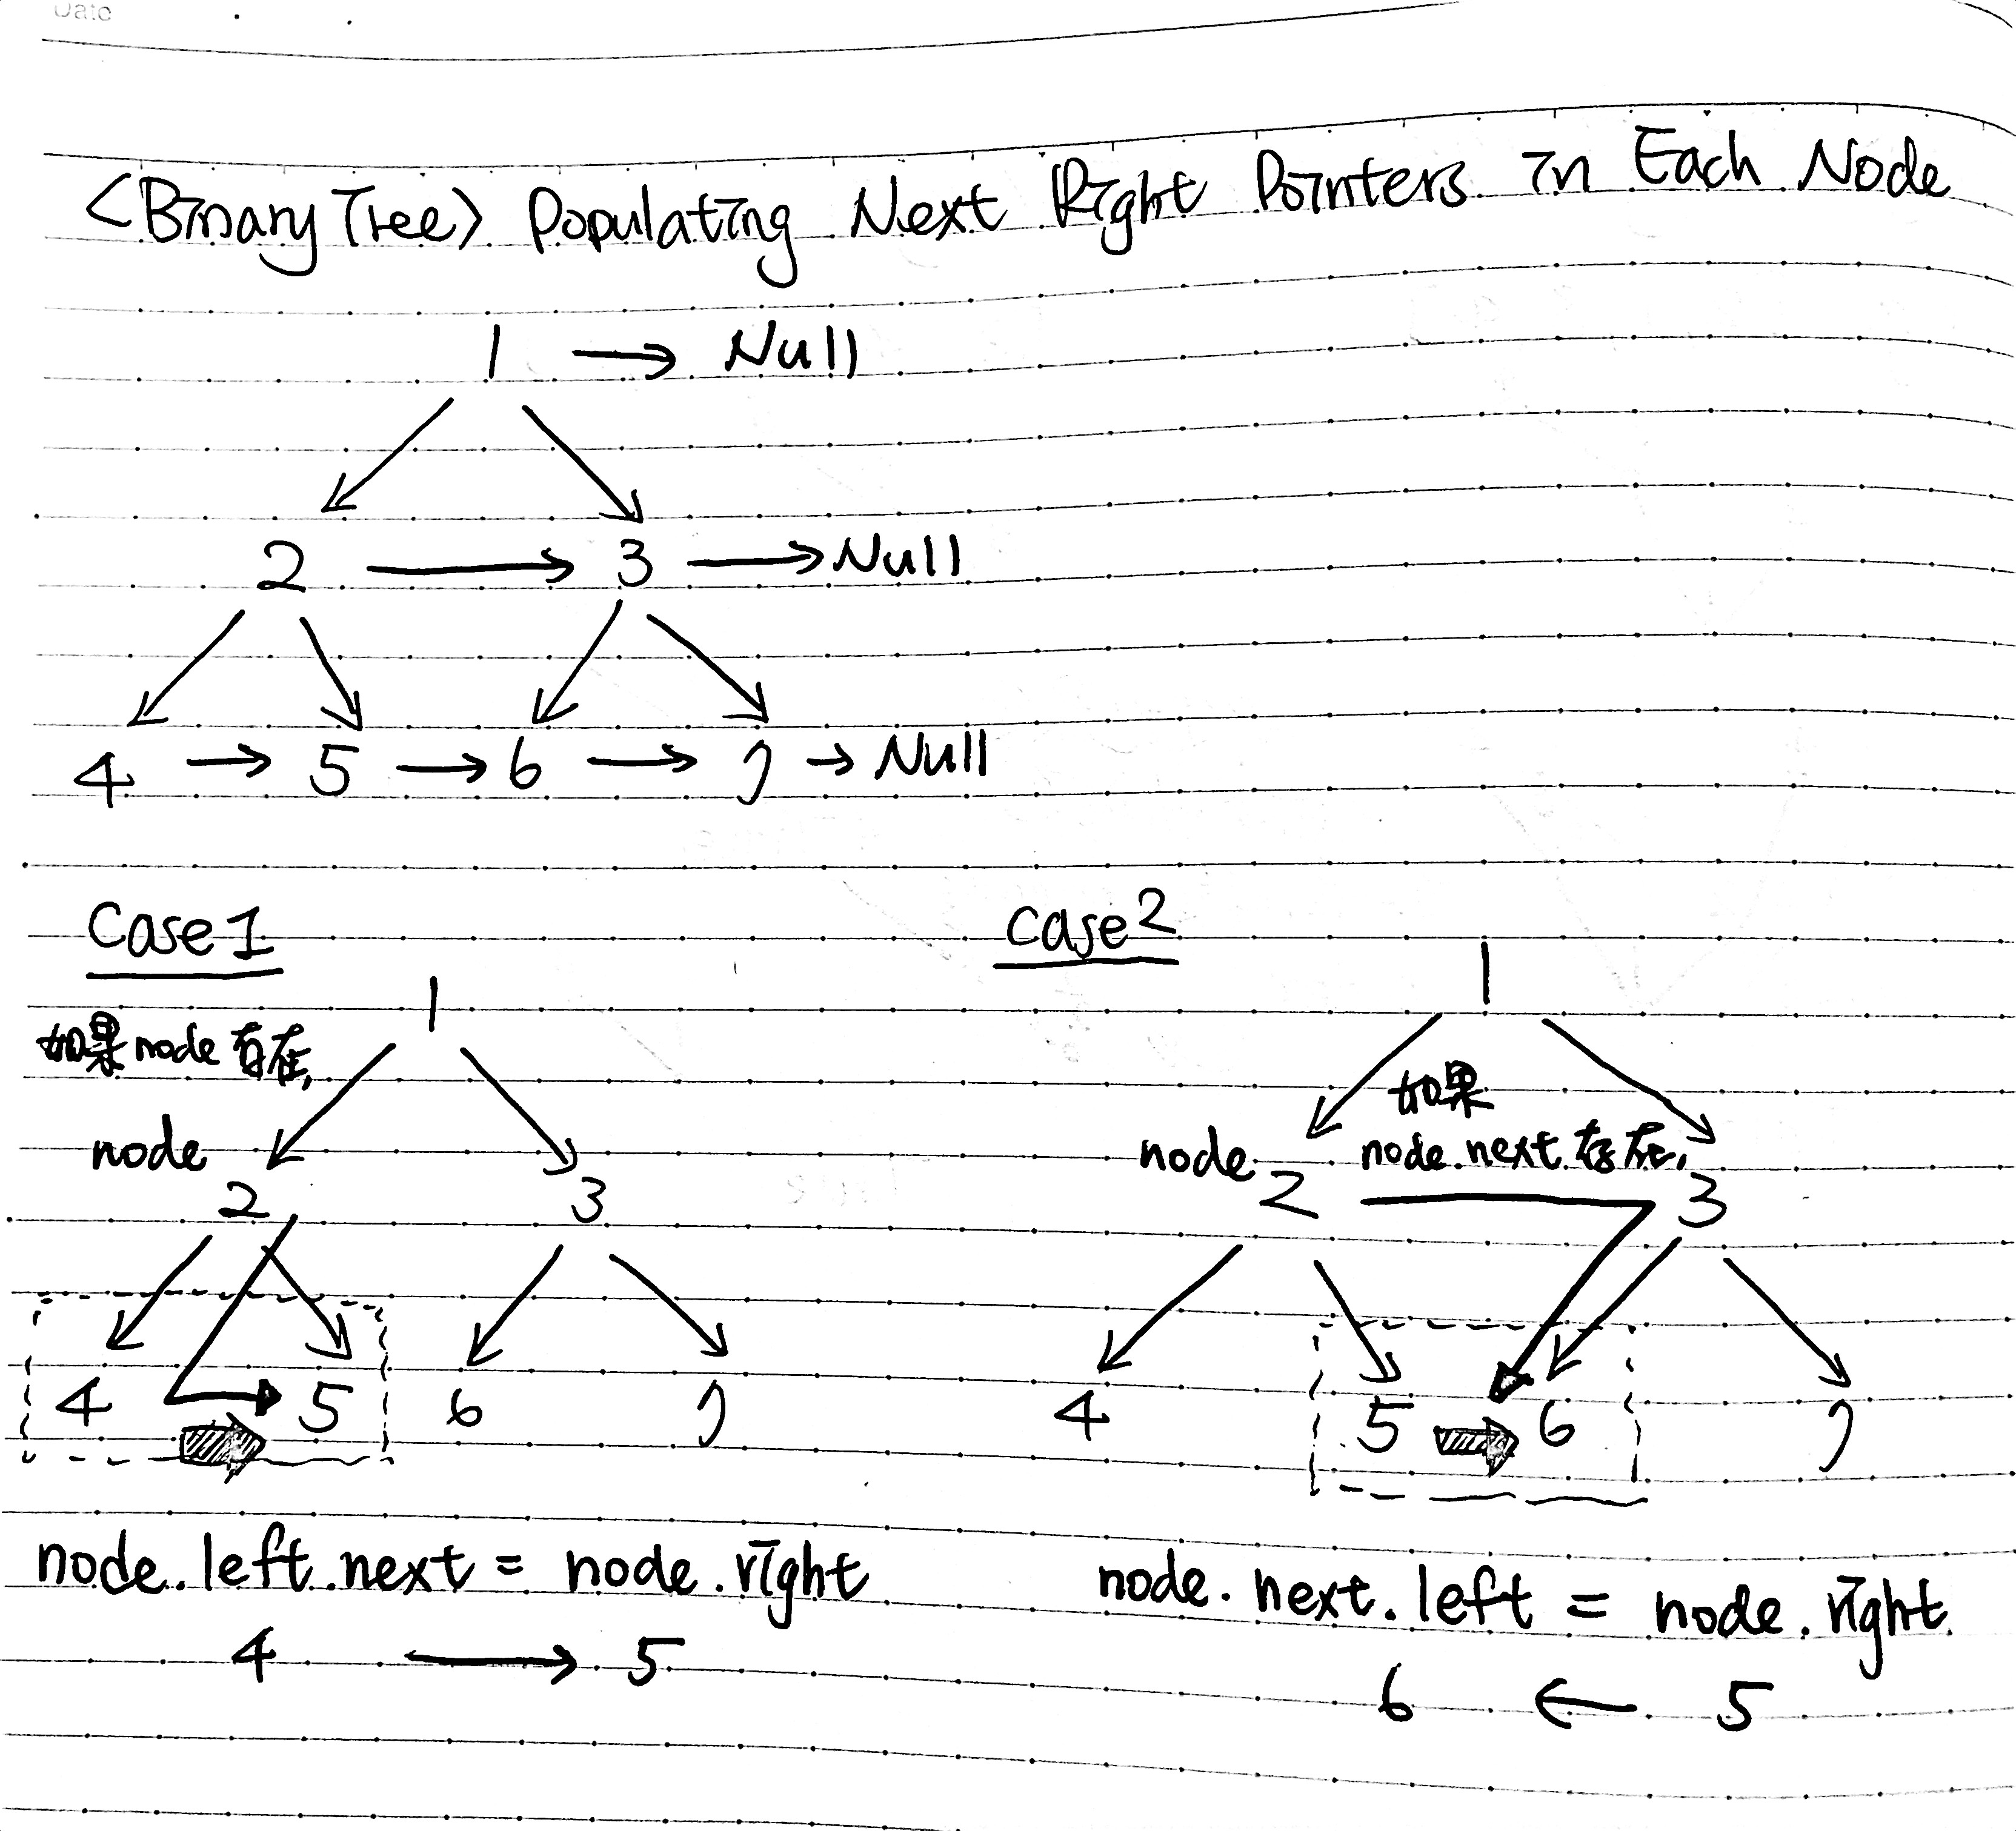 Date
<Binary Tree> Populating Next Right Pointers in Each Node
1 → Null
2 → 3 → Null
4 → 5 → 6 → 7 → Null
Case 1
1
如果node存在,
node
2 3
4 5 6 7
node.left.next = node.right
4 → 5
Case 2
1
如果
node node.next存在,
2 3
4 5 6 7
node.next.left = node.right
6 ← 5